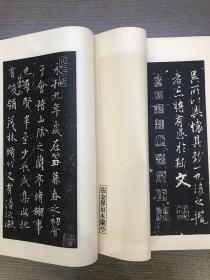 異所以興懷其致一也後之攬
者亦將有感於斯文
張金界奴本蘭亭
永和九年歲在癸丑暮春之初會
于會稽山陰之蘭亭脩禊事
也羣賢畢至少長咸集此地
有峻領茂林脩竹又有清流激